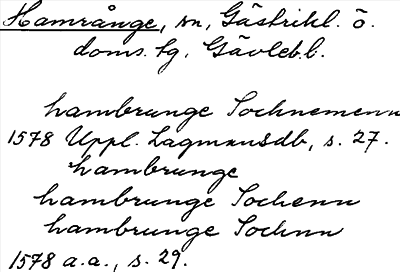 Hamrånge, sn, Gästrikl. ö.
doms. tg, Gävleb. l.
hambrunge Sochnemenn
1578 Uppl. Lagmansdb, s. 27.
hambrunge
hambrunge Sochenn
hambrunge Sochnn
1578 a.a., s. 29.